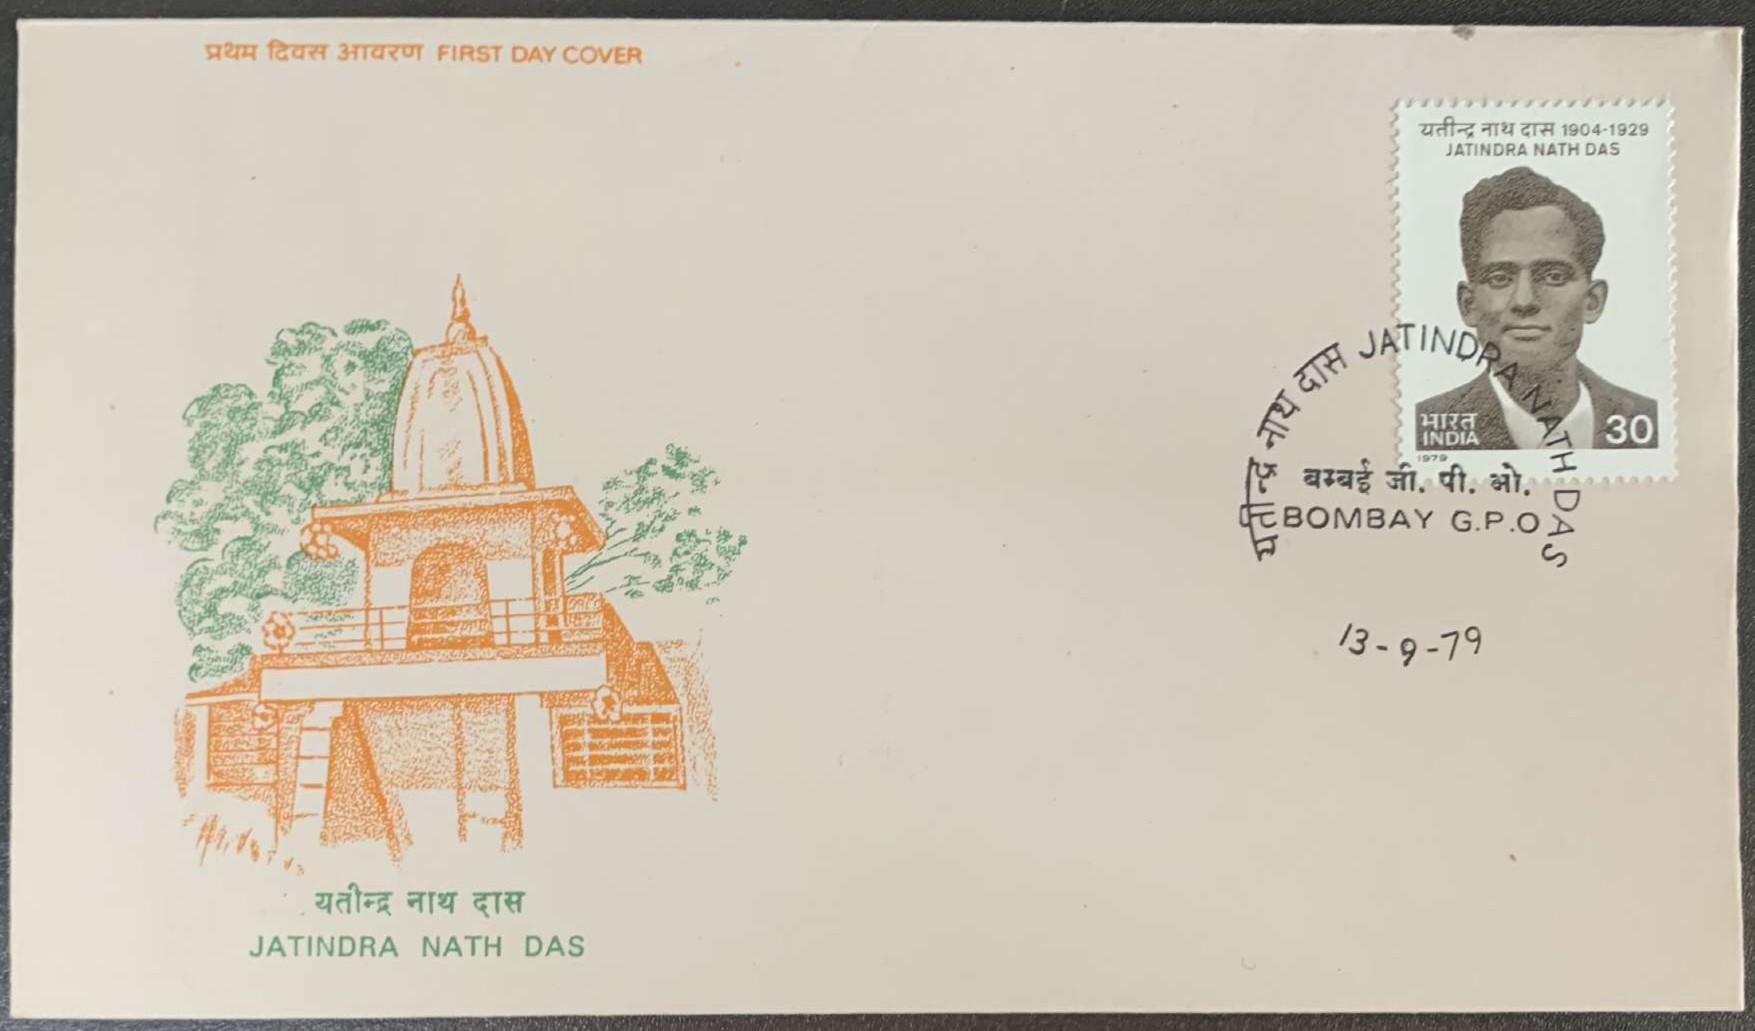 प्रथम दिवस आवरण FIRST DAY COVER
यतीन्द्र नाथ दास 1904-1929
JATINDRA NATH DAS
भारत
INDIA
30
1979
यतीन्द्र नाथ दास JATINDRA NATH DAS
बम्बई जी. पी. ओ.
BOMBAY G.P.O
13-9-79
यतीन्द्र नाथ दास
JATINDRA NATH DAS